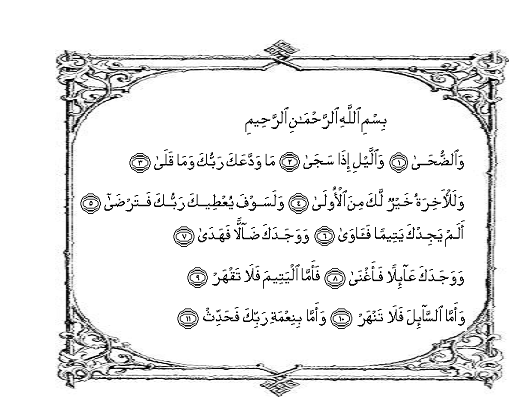 بِسْمِ ٱللَّهِ ٱلرَّحْمَـٰنِ ٱلرَّحِيمِ
وَٱلضُّحَىٰ ١ وَٱلَّيْلِ إِذَا سَجَىٰ ٢ مَا وَدَّعَكَ رَبُّكَ وَمَا قَلَىٰ ٣
وَلَلْـَٔاخِرَةُ خَيْرٌ لَّكَ مِنَ ٱلْأُولَىٰ ٤ وَلَسَوْفَ يُعْطِيكَ رَبُّكَ فَتَرْضَىٰٓ ٥
أَلَمْ يَجِدْكَ يَتِيمًا فَـَٔاوَىٰ ٦ وَوَجَدَكَ ضَآلًّا فَهَدَىٰ ٧
وَوَجَدَكَ عَآئِلًا فَأَغْنَىٰ ٨ فَأَمَّا ٱلْيَتِيمَ فَلَا تَقْهَرْ ٩
وَأَمَّا ٱلسَّآئِلَ فَلَا تَنْهَرْ ١٠ وَأَمَّا بِنِعْمَةِ رَبِّكَ فَحَدِّثْ ١١